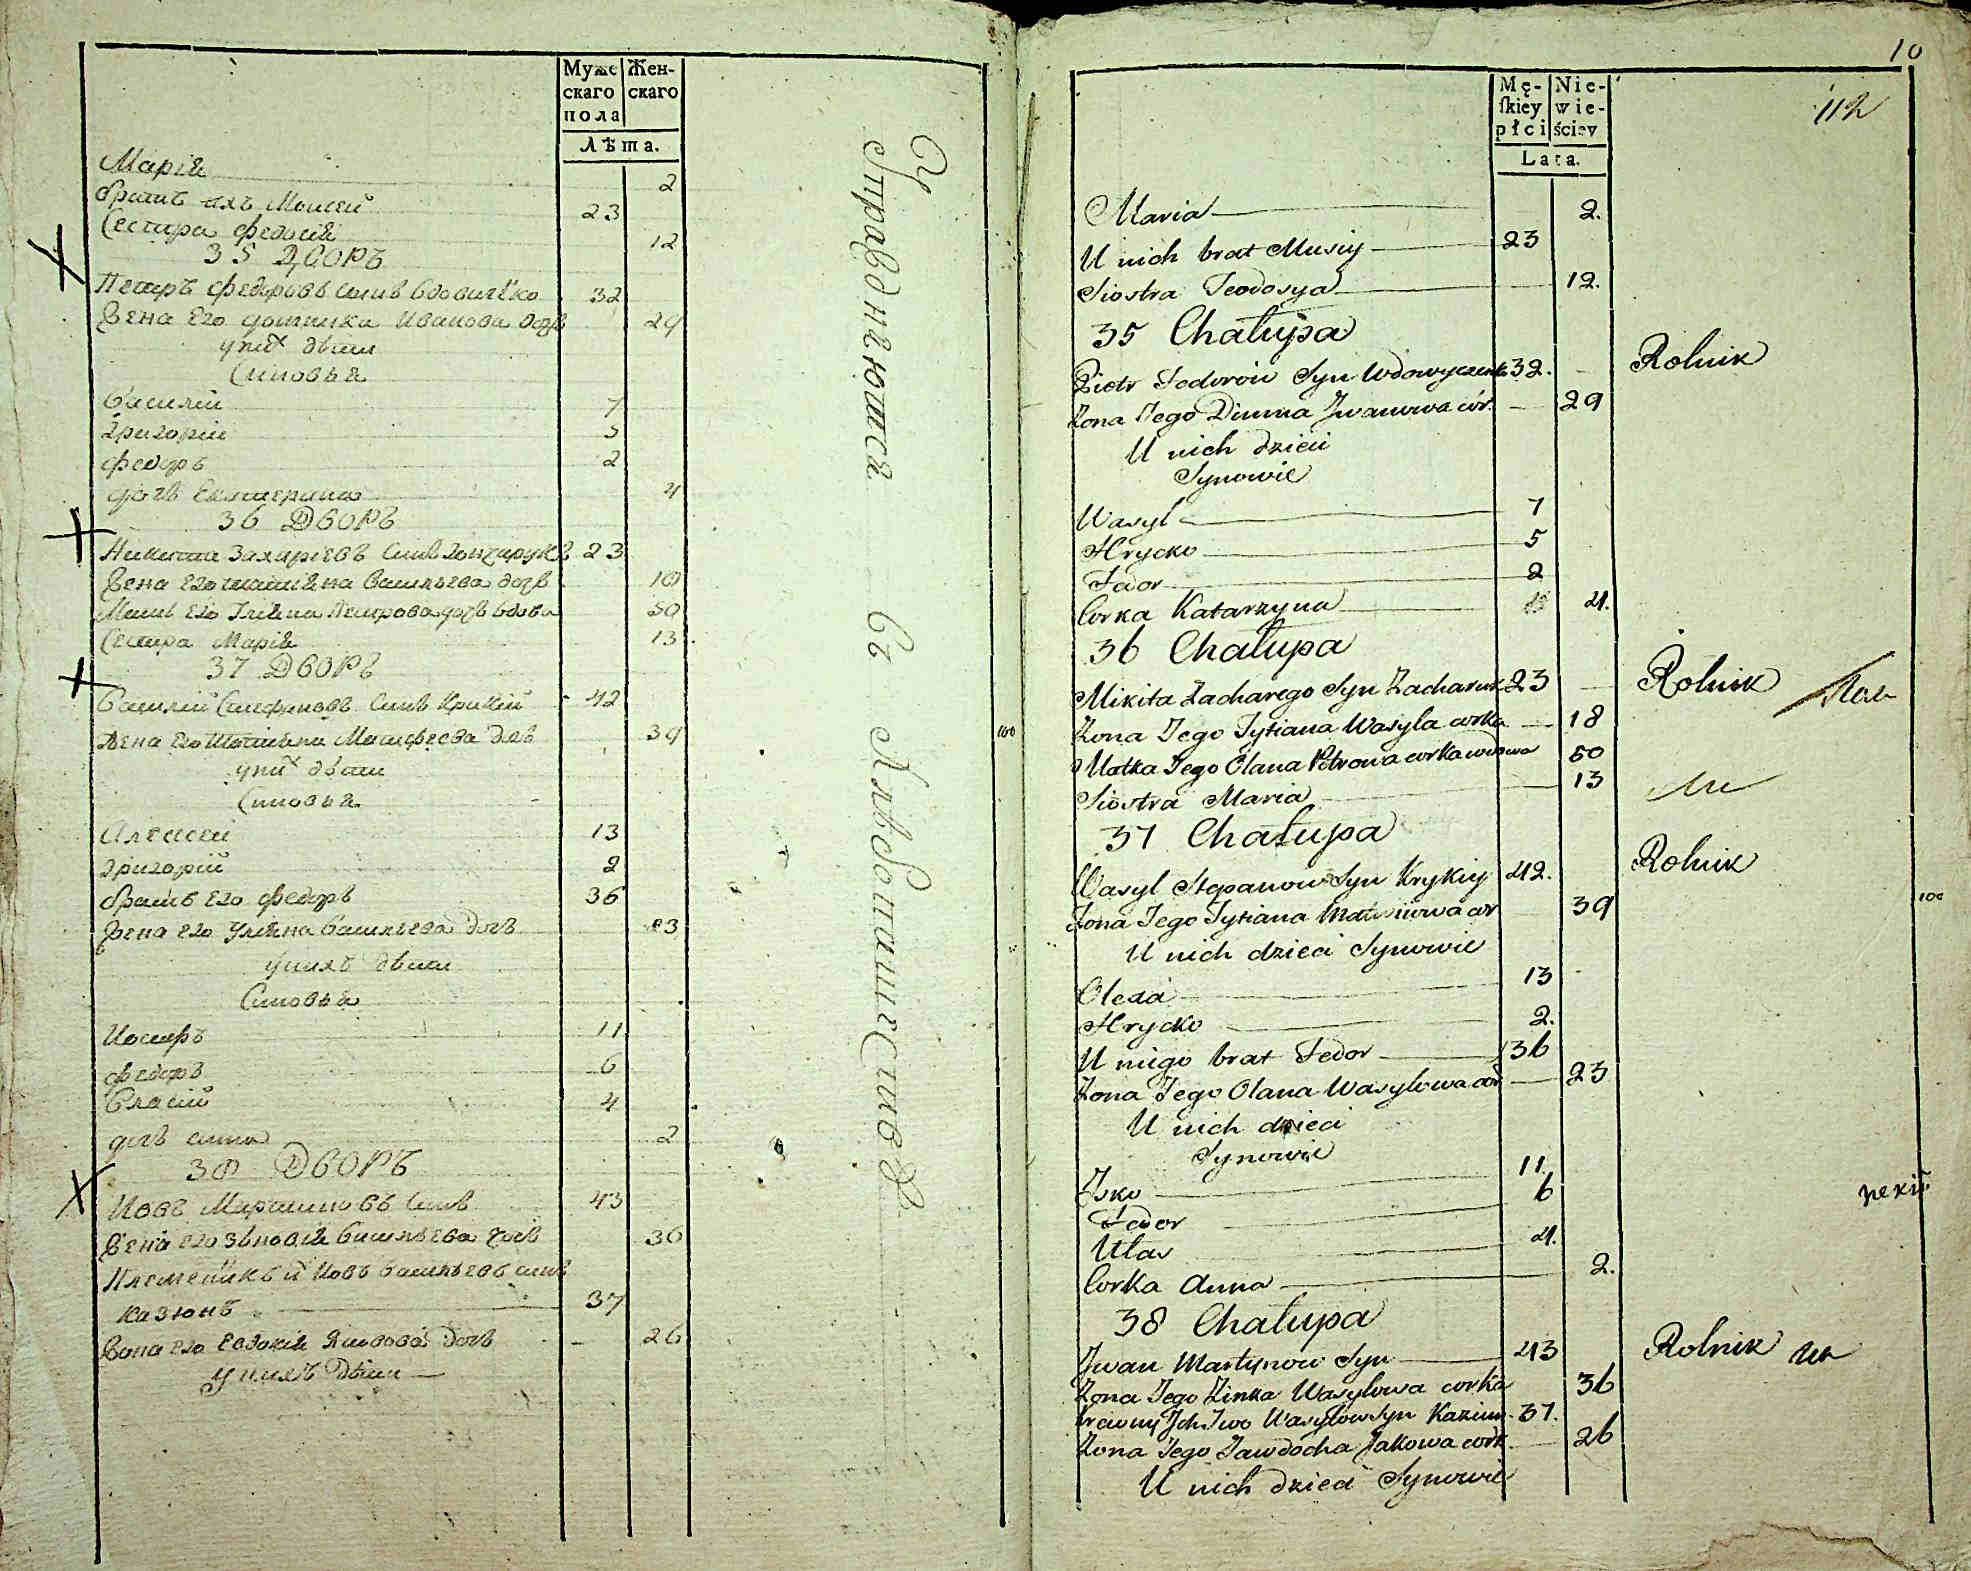 Муже Жен-
скаго скаго
пола
Лѣта.
Марія 2
братъ ихъ Моисей 23
Сестра федосія 12
35 Дворъ
Петръ федоровъ сынъ Вдовиченко 32
Жена его домника Иванова дочь 29
у них дѣти
Сыновья
Василій 7
Григорій 5
федоръ 2
дочь Екатерина 4
36 Дворъ
Никита Захаріевъ сынъ Гончарукъ 23
Жена его татіяна Васильева дочь 18
Мать его Уліяна Петрова дочь вдова 50
Сестра Марія 13
37 Дворъ
Василій Стефановъ сынъ Крикій 42
Жена его татіяна Матфеева дочь 39
у них дѣти
Сыновья
Алексей 13
Григорій 2
братъ его федоръ 36
Жена его Уліяна Васильева дочь 23
у нихъ дѣти
Сыновья
Иосифъ 11
федоръ 6
Власій 4
дочь анна 2
38 Дворъ
Иовъ Мартиновъ сынъ 43
Жена его Зѣновія Васильева дочь 36
Племеникъ и Иовъ Васильевъ сынъ
Казюнъ 37
Жена его Евдокія Яковова дочь 26
у нихъ дѣти
Упражняются въ Хлебопашествѣ
10
112
Mę- Nie-
skiey wie-
płci ściey
Lata.
Maria 2.
U nich brat Musiy 23
Siostra Teodosya 12.
35 Chałupa
Piotr Fedorow Syn Wdowyczenko 32. Rolnik
Żona Jego Dimna Jwanowa cór. 29
U nich dzieci
Synowie
Wasyl 7
Hrycko 5
Fedor 2
Corka Katarzyna 4.
36 Chałupa
Mikita Zacharego Syn Zacharuk 23 Rolnik
Żona Jego Tytiana Wasyla corka 18
Matka Jego Olana Petrowa corka wdowa 50
Siostra Maria 13
37 Chałupa
Wasyl Stepanow Syn Krykiy 42. Rolnik
Żona Jego Tytiana Matwiiowa cor 39
U nich dzieci Synowie
Olexa 13
Hrycko 2.
U niego brat Fedor 36
Żona Jego Olana Wasylowa cor 23
U nich dzieci
Synowie
Josko 11.
Fedor 6
Ułas 4.
Corka Anna 2.
38 Chałupa
Jwan Martynow Syn 43 Rolnik
Żona Jego Zinka Wasylowa corka 36
Krewny Jch Jwo Wasylow Syn Kaziun 37.
Żona Jego Jawdocha Jakowa cork 26
U nich dzieci Synowie
100
100